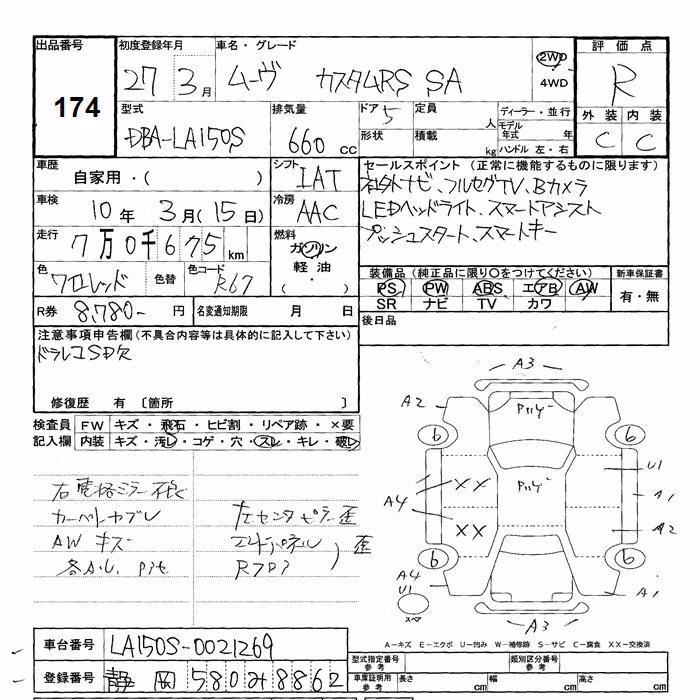 出品番号 初度登録年月 車名・グレード 評価点
174
27 3月 ムーヴ カスタムRS SA 2WD 4WD R
型式 排気量 ドア 定員 ディーラー・並行 外装 内装
DBA-LA150S 660 cc 5 人 モデル年式 年 C C
形状 積載 kg ハンドル 左・右
車歴 シフト セールスポイント(正常に機能するものに限ります)
自家用・( ) IAT 社外ナビ、フルセグTV、Bカメラ
車検 冷房 LEDヘッドライト、スマートアシスト
10年 3月(15日) AAC プッシュスタート、スマートキー
走行 燃料
7万0千675km ガソリン
軽油
( ・ )
色 色替 色コード 装備品(純正品に限り○をつけてください) 新車保証書
ワロレッド R67 PS PW ABS エアB AW 有・無
SR ナビ TV カワ
R券 8,780- 円 名変通知期限 月 日 後日品
注意事項申告欄(不具合内容等は具体的に記入して下さい)
ドラレコSD欠
修復歴 有 〔箇所 〕
検査員 FW キズ・飛石・ヒビ割・リペア跡・×要
記入欄 内装 キズ・汚レ・コゲ・穴・スレ・キレ・破レ
A3
A2
6 6
U1
A4 XX A1
XX A2
6 6
A4 U1 A1
スペア A3
カーペットヤブレ 左センタピラー歪
AWキズ エンドパネル 歪
A-キズ E-エクボ U-凹み W-補修跡 S-サビ C-腐食 XX-交換済
車台番号 LA150S-0021269
型式指定番号 参考 類別区分番号 参考
登録番号 静岡 580 8862
車庫証明用 参考 長さ cm 幅 cm 高さ cm